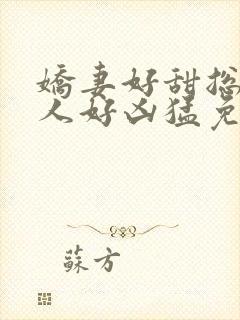 嬌妻好甜搃
人好凶猛免
蘇方